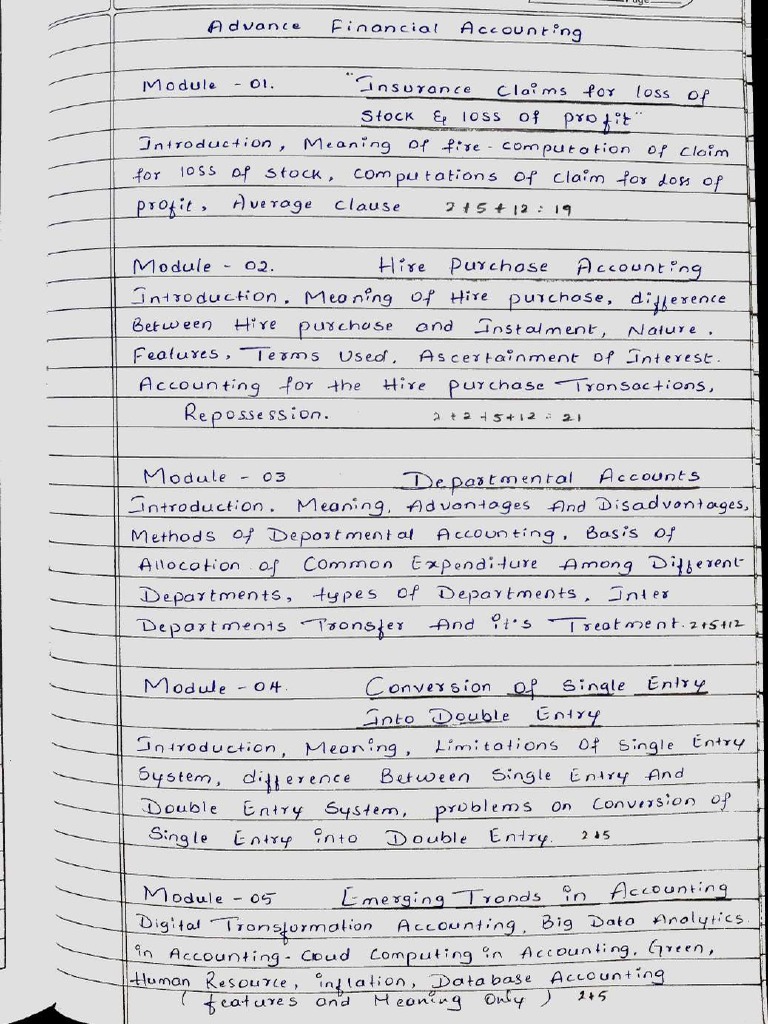 Page
Advance Financial Accounting
Module - 01. "Insurance Claims for loss of
Stock & loss of profit"
Introduction, Meaning of fire - computation of claim
for loss of stock, computations of claim for loss of
profit, Average clause 2+5+12 = 19
Module - 02. Hire Purchase Accounting
Introduction. Meaning of Hire purchase, difference
Between Hire purchase and Instalment, Nature.
Features, Terms Used, Ascertainment of Interest.
Accounting for the Hire purchase Transactions,
Repossession. 2+2+5+12 = 21
Module - 03 Departmental Accounts
Introduction. Meaning, Advantages And Disadvantages,
Methods of Departmental Accounting, Basis of
Allocation of Common Expenditure Among Different
Departments, types of Departments, Inter
Departments Transfer And it's Treatment. 2+5+12
Module - 04. Conversion of Single Entry
Into Double Entry
Introduction, Meaning, Limitations of Single Entry
System, difference Between Single Entry And
Double Entry System, problems on Conversion of
Single Entry into Double Entry. 2+5
Module - 05 Emerging Trends in Accounting
Digital Transformation Accounting, Big Data Analytics
in Accounting - Cloud Computing in Accounting, Green,
Human Resource, inflation, Database Accounting
(features and Meaning Only) 2+5